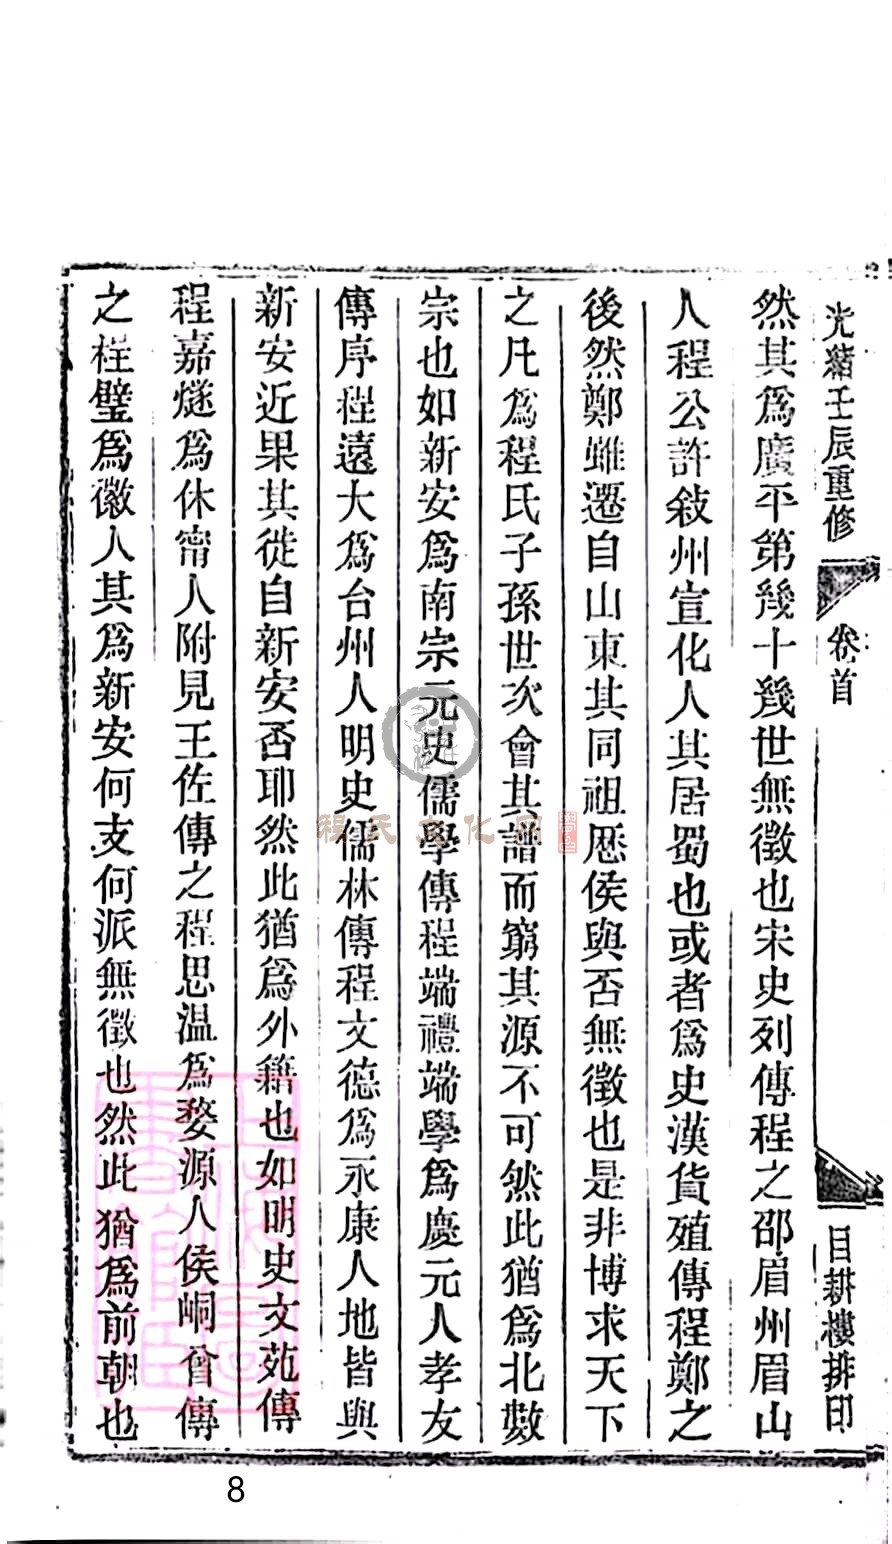 光緒壬辰重修
卷首
目耕樓排印
然其爲廣平第幾十幾世無徵也宋史列傳程之邵眉州眉山
人程公許敍州宣化人其居蜀也或者爲史漢貨殖傳程鄭之
後然鄭雖遷自山東其同祖歷侯與否無徵也是非博求天下
之凡爲程氏子孫世次會其譜而窮其源不可然此猶爲北數
宗也如新安爲南宗元史儒學傳程端禮端學爲慶元人孝友
傳序程遠大爲台州人明史儒林傳程文德爲永康人地皆與
新安近果其徙自新安否耶然此猶爲外籍也如明史文苑傳
程嘉燧爲休甯人附見王佐傳之程思温爲婺源人侯峒曾傳
之程璧爲徽人其爲新安何支何派無徵也然此猶爲前朝也
程氏文化网
8